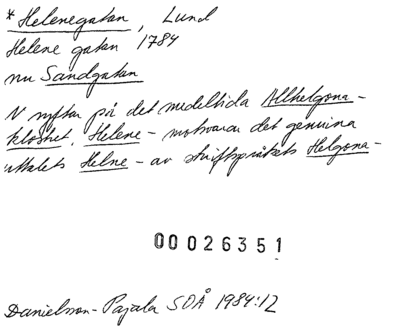 * Helenegatan, Lund
Helene gatan 1784
nu Sandgatan
N syftar på det medeltida Allhelgona-
klostret. Helene- motsvarar det genuina
uttalets Helne- av skriftspråkets Helgona-
00026351
Danielsson-Pajala SOÅ 1984:12